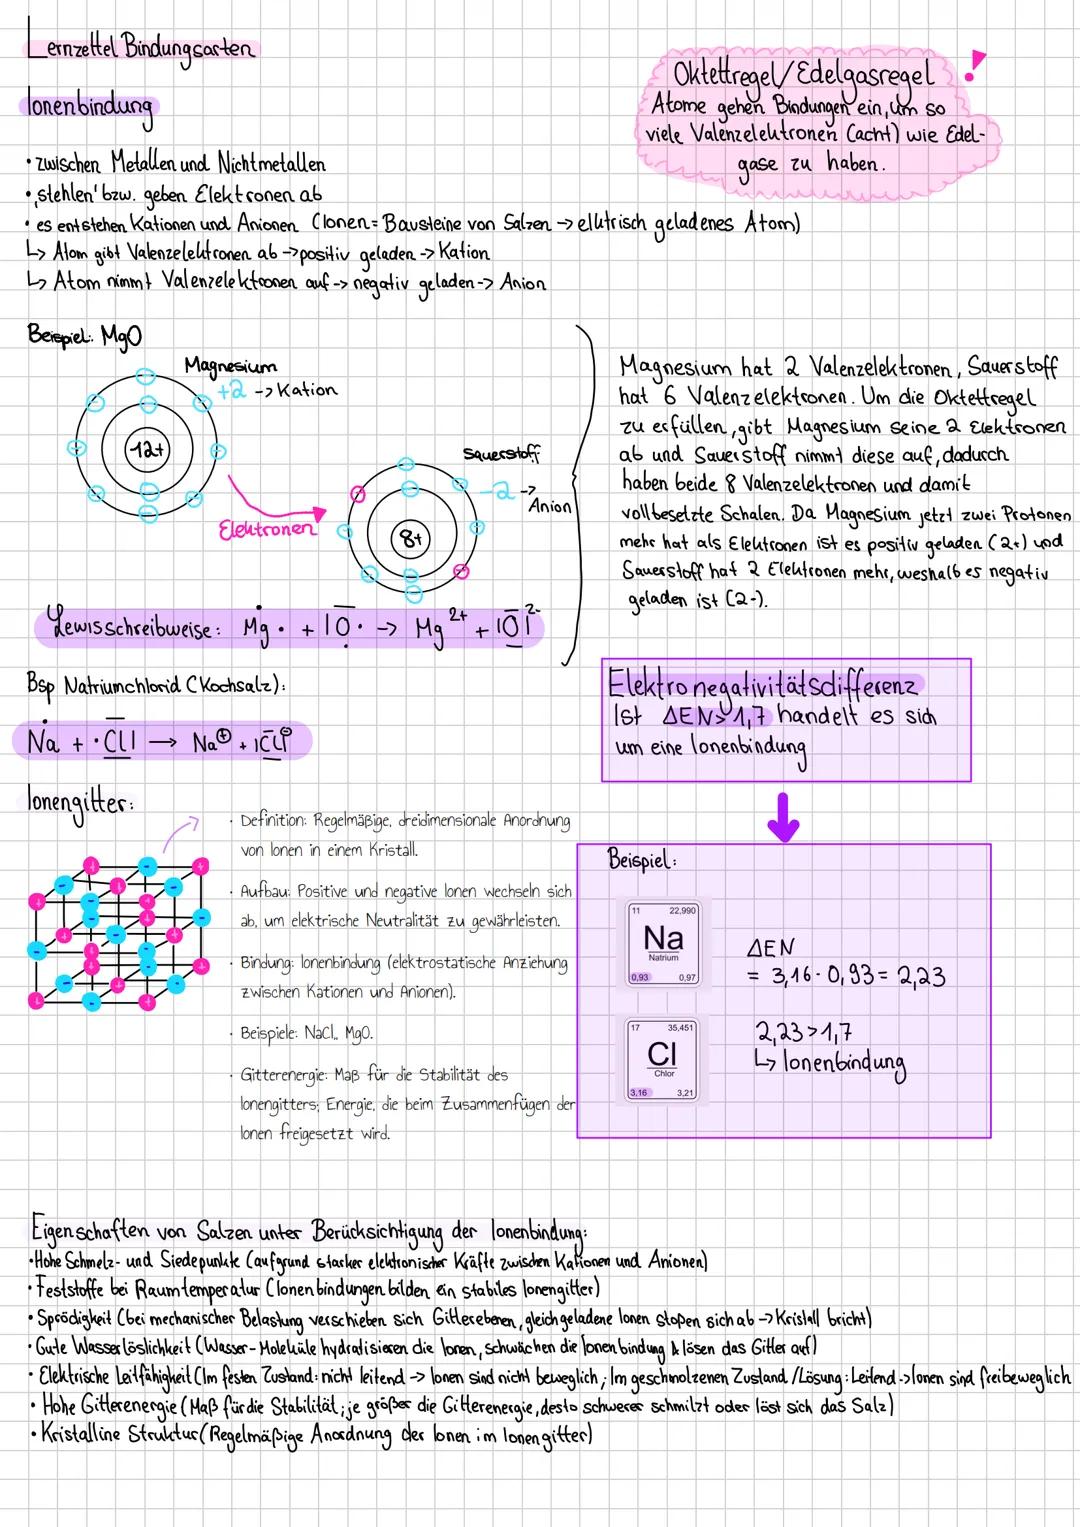 Lernzettel Bindungsarten
Oktettregel/Edelgasregel !
Atome gehen Bindungen ein, um so
viele Valenzelektronen (acht) wie Edel-
gase zu haben.
Ionenbindung
• zwischen Metallen und Nichtmetallen
• 'stehlen' bzw. geben Elektronen ab
• es entstehen Kationen und Anionen (Ionen = Bausteine von Salzen -> elektrisch geladenes Atom)
↳ Atom gibt Valenzelektronen ab -> positiv geladen -> Kation
↳ Atom nimmt Valenzelektronen auf -> negativ geladen -> Anion
Beispiel: MgO
Magnesium
+2 -> Kation
12+
Sauerstoff
-2 -> Anion
8+
Elektronen
Magnesium hat 2 Valenzelektronen, Sauerstoff
hat 6 Valenzelektronen. Um die Oktettregel
zu erfüllen, gibt Magnesium seine 2 Elektronen
ab und Sauerstoff nimmt diese auf, dadurch
haben beide 8 Valenzelektronen und damit
vollbesetzte Schalen. Da Magnesium jetzt zwei Protonen
mehr hat als Elektronen ist es positiv geladen (2+) und
Sauerstoff hat 2 Elektronen mehr, weshalb es negativ
geladen ist (2-).
Lewisschreibweise: Mg· + |O· -> Mg²⁺ + |O|²⁻
Bsp Natriumchlorid (Kochsalz):
Na + ·Cl| → Na⊕ + |Cl|⊖
Elektronegativitätsdifferenz
Ist ΔEN > 1,7 handelt es sich
um eine Ionenbindung
Ionengitter:
· Definition: Regelmäßige, dreidimensionale Anordnung
von Ionen in einem Kristall.
· Aufbau: Positive und negative Ionen wechseln sich
ab, um elektrische Neutralität zu gewährleisten.
· Bindung: Ionenbindung (elektrostatische Anziehung
zwischen Kationen und Anionen).
· Beispiele: NaCl, MgO.
· Gitterenergie: Maß für die Stabilität des
Ionengitters; Energie, die beim Zusammenfügen der
Ionen freigesetzt wird.
Beispiel:
11 22,990
Na
Natrium
0,93 0,97
ΔEN
= 3,16 - 0,93 = 2,23
17 35,451
Cl
Chlor
3,16 3,21
2,23 > 1,7
↳ Ionenbindung
Eigenschaften von Salzen unter Berücksichtigung der Ionenbindung:
• Hohe Schmelz- und Siedepunkte (aufgrund starker elektronischer Kräfte zwischen Kationen und Anionen)
• Feststoffe bei Raumtemperatur (Ionenbindungen bilden ein stabiles Ionengitter)
• Sprödigkeit (bei mechanischer Belastung verschieben sich Gitterebenen, gleichgeladene Ionen stoßen sich ab -> Kristall bricht)
• Gute Wasserlöslichkeit (Wasser-Moleküle hydratisieren die Ionen, schwächen die Ionenbindung & lösen das Gitter auf)
• Elektrische Leitfähigkeit (Im festen Zustand: nicht leitend -> Ionen sind nicht beweglich; Im geschmolzenen Zustand/Lösung: Leitend -> Ionen sind frei beweglich
• Hohe Gitterenergie (Maß für die Stabilität; je größer die Gitterenergie, desto schwerer schmilzt oder löst sich das Salz)
• Kristalline Struktur (Regelmäßige Anordnung der Ionen im Ionengitter)